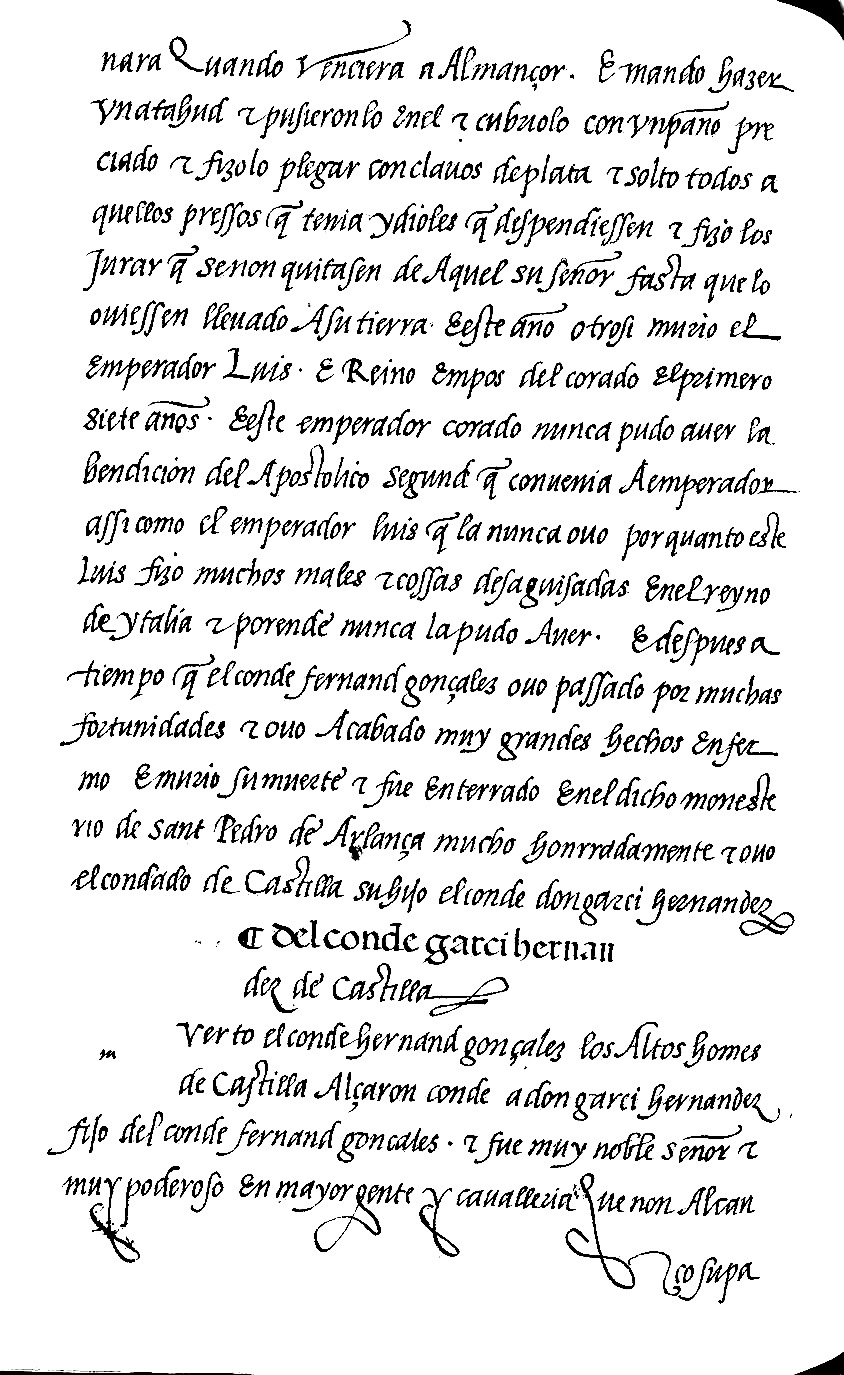 nara Quando Venciera a Almançor. E mando hazer
Vnatahud τ pusieronlo Enel τ cubriolo con Vnpaño pre
ciado τ fizolo plegar con clauos deplata τ solto todos a
quellos pressos q̃ tenia y dioles q̃ despendiessen τ fizo los
Jurar q̃ senon quitasen de Aquel su señor fasta que lo
ouiessen lleuado Asu tierra. Eeste año otrosi murio el
Emperador Luis. E Reino Empos del corado Elprimero
siete años. Eeste emperador corado nunca pudo auer la
bendición del Apostolico segund q̃ conuenia Aemperador
assi como el emperador luis q̃ la nunca ouo por quanto este
Luis fizo muchos males τ cossas desaguisadas Enel reyno
de ytalia τ porende nunca la pudo Auer. E despues a
tiempo q̃ el conde fernand gonçalez ouo passado por muchas
fortunidades τ ouo Acabado muy grandes hechos Enfer
mo E murio su muerte τ fue Enterrado Enel dicho moneste
rio de sant Pedro de Arlança mucho honrradamente τ ouo
el condado de Castilla su hijo el conde don garci hernandez
¶ del conde garci hernan
dez de Castilla
m Verto el conde hernand gonçalez los Altos homes
de Castilla Alçaron conde a don garci hernandez
fijo del conde fernand goncales. τ fue muy noble señor τ
muy poderoso En mayor gente y caualleria Que non Alcan
ço su pa